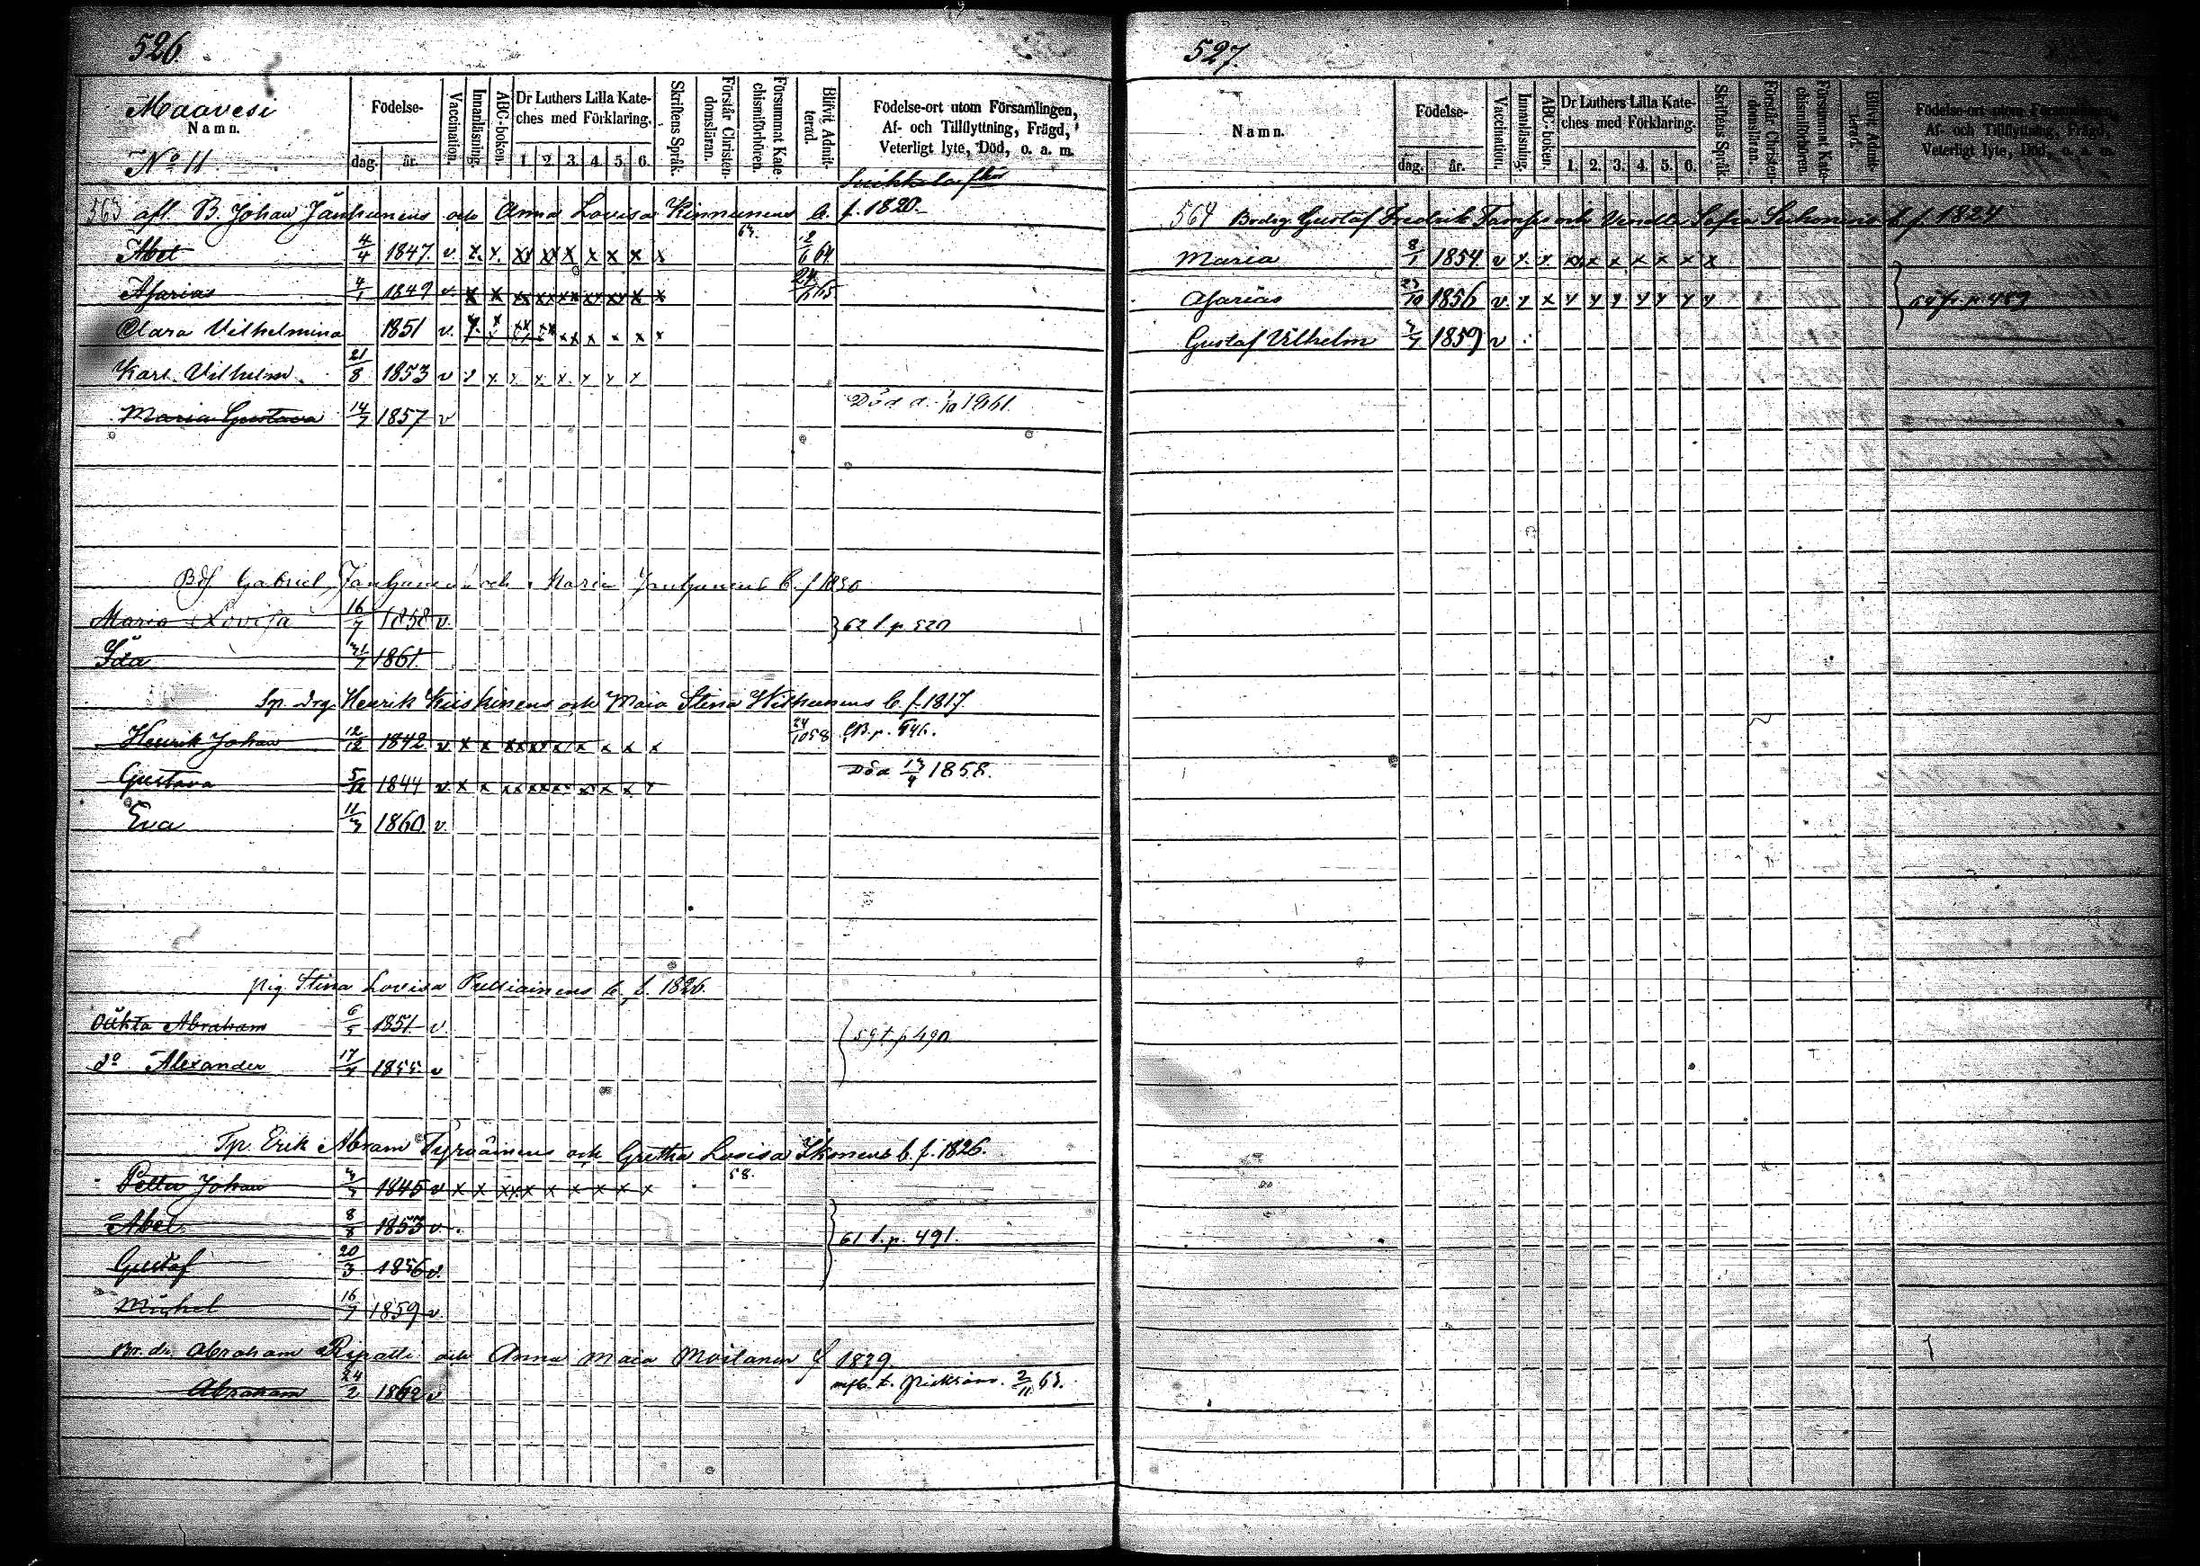 526
Maavesi
Namn.
No 11
Födelse-
dag. år.
Vaccination.
Innanläsning.
ABC-boken.
Dr Luthers Lilla Kate-
ches med Förklaring.
1. 2. 3. 4. 5. 6.
Skriftens Språk.
Förstår Christen-
domsläran.
Försummat Kate-
chismiförhören.
Blifvit Admit-
terad.
Födelse-ort utom Församlingen,
Af- och Tillflyttning, Frägd,
Veterligt lyte, Död, o. a. m.
563 afl. B. Johan Jänhunens och Anna Lovisa Kinnunens b. f. 1820.
63.
Abel 4/4 1847. v. x. x. xx xx x x x x x 64
Asarias 4/1 1849 v x x xx xx xx xx xx x x 65
Clara Vilhelmina 1851 v.
Karl Vilhelm 21/8 1853 v
Maria Gustava 14/7 1857 v Död d. 1/10 1861.
Gabriel Janhunen och Maria Janhunens b. f 1830
Maria Lovisa 16/7 1858 v.
62 t. p 520
Ida 1861.
Sp. drg. Henrik Kiiskinens och Maia Stina b. f. 1817.
Henrik Johan 12/12 1842 v x x xx xx x x x x x 24/10 58
Gustava 5/12 1844 v x x Död 13/4 1858.
Eva 11/3 1860 v.
pig. Stina Lovisa Pulliainens b. f. 1826.
oäkta Abraham 6/5 1851 v.
59 t. p 490
do Alexander 1855 v
Tp. Erik Abram Tyrväinens och Gretha Lovisa Ikonens b. f. 1826.
58.
Petter Johan 1845 v x x xx x x x x x x
Abel 8/8 1853 v.
61 t. p. 491.
Gustaf 20/3 1856 v.
Michel 16/7 1859 v.
Abraham Ripatti och Anna Maia Moilanen f 1829
Abraham 24/2 1862 v t. Pieksäm. 2/11 63.
527.
Namn.
Födelse-
dag. år.
Vaccination.
Innanläsning.
ABC-boken.
Dr Luthers Lilla Kate-
ches med Förklaring.
1. 2. 3. 4. 5. 6.
Skriftens Språk.
Förstår Christen-
domsläran.
Försummat Kate-
chismiförhören.
Blifvit Admit-
terad.
Födelse-ort utom Församlingen,
Af- och Tillflyttning, Frägd,
Veterligt lyte, Död, o. a. m.
564 Gustaf Fredrik och Sofia b. f. 1824
Maria 8/1 1854 v x x xx x x x x x x
Asarias 1856 v x x x x x x x x x
Gustaf Vilhelm 1859 v